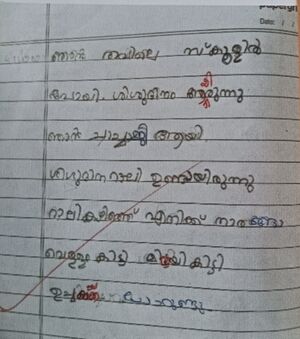 Date: / /
ഞാൻ രാവിലെ സ്കൂളിൽ
പോയി. ശിശുദിനം ആയിരുന്നു
ഞാൻ ചാച്ചാജി ആയി
ശിശുദിന റാലി ഉണ്ടായിരുന്നു
റാലി കഴിഞ്ഞ് എനിക്ക് നാരങ്ങാ
വെള്ളം കിട്ടി മിഠായി കിട്ടി